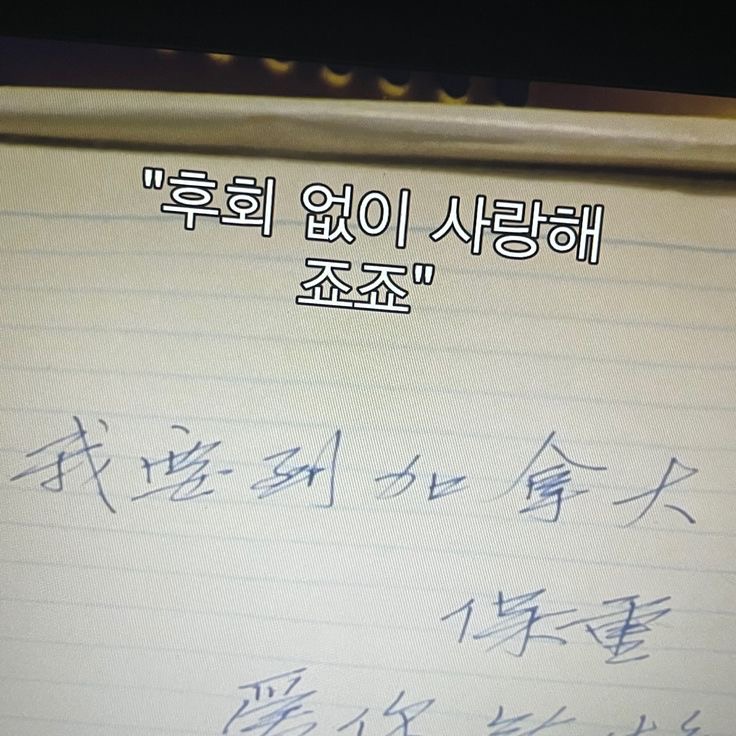 "후회 없이 사랑해
죠죠"
我要到加拿大
保重
愛你